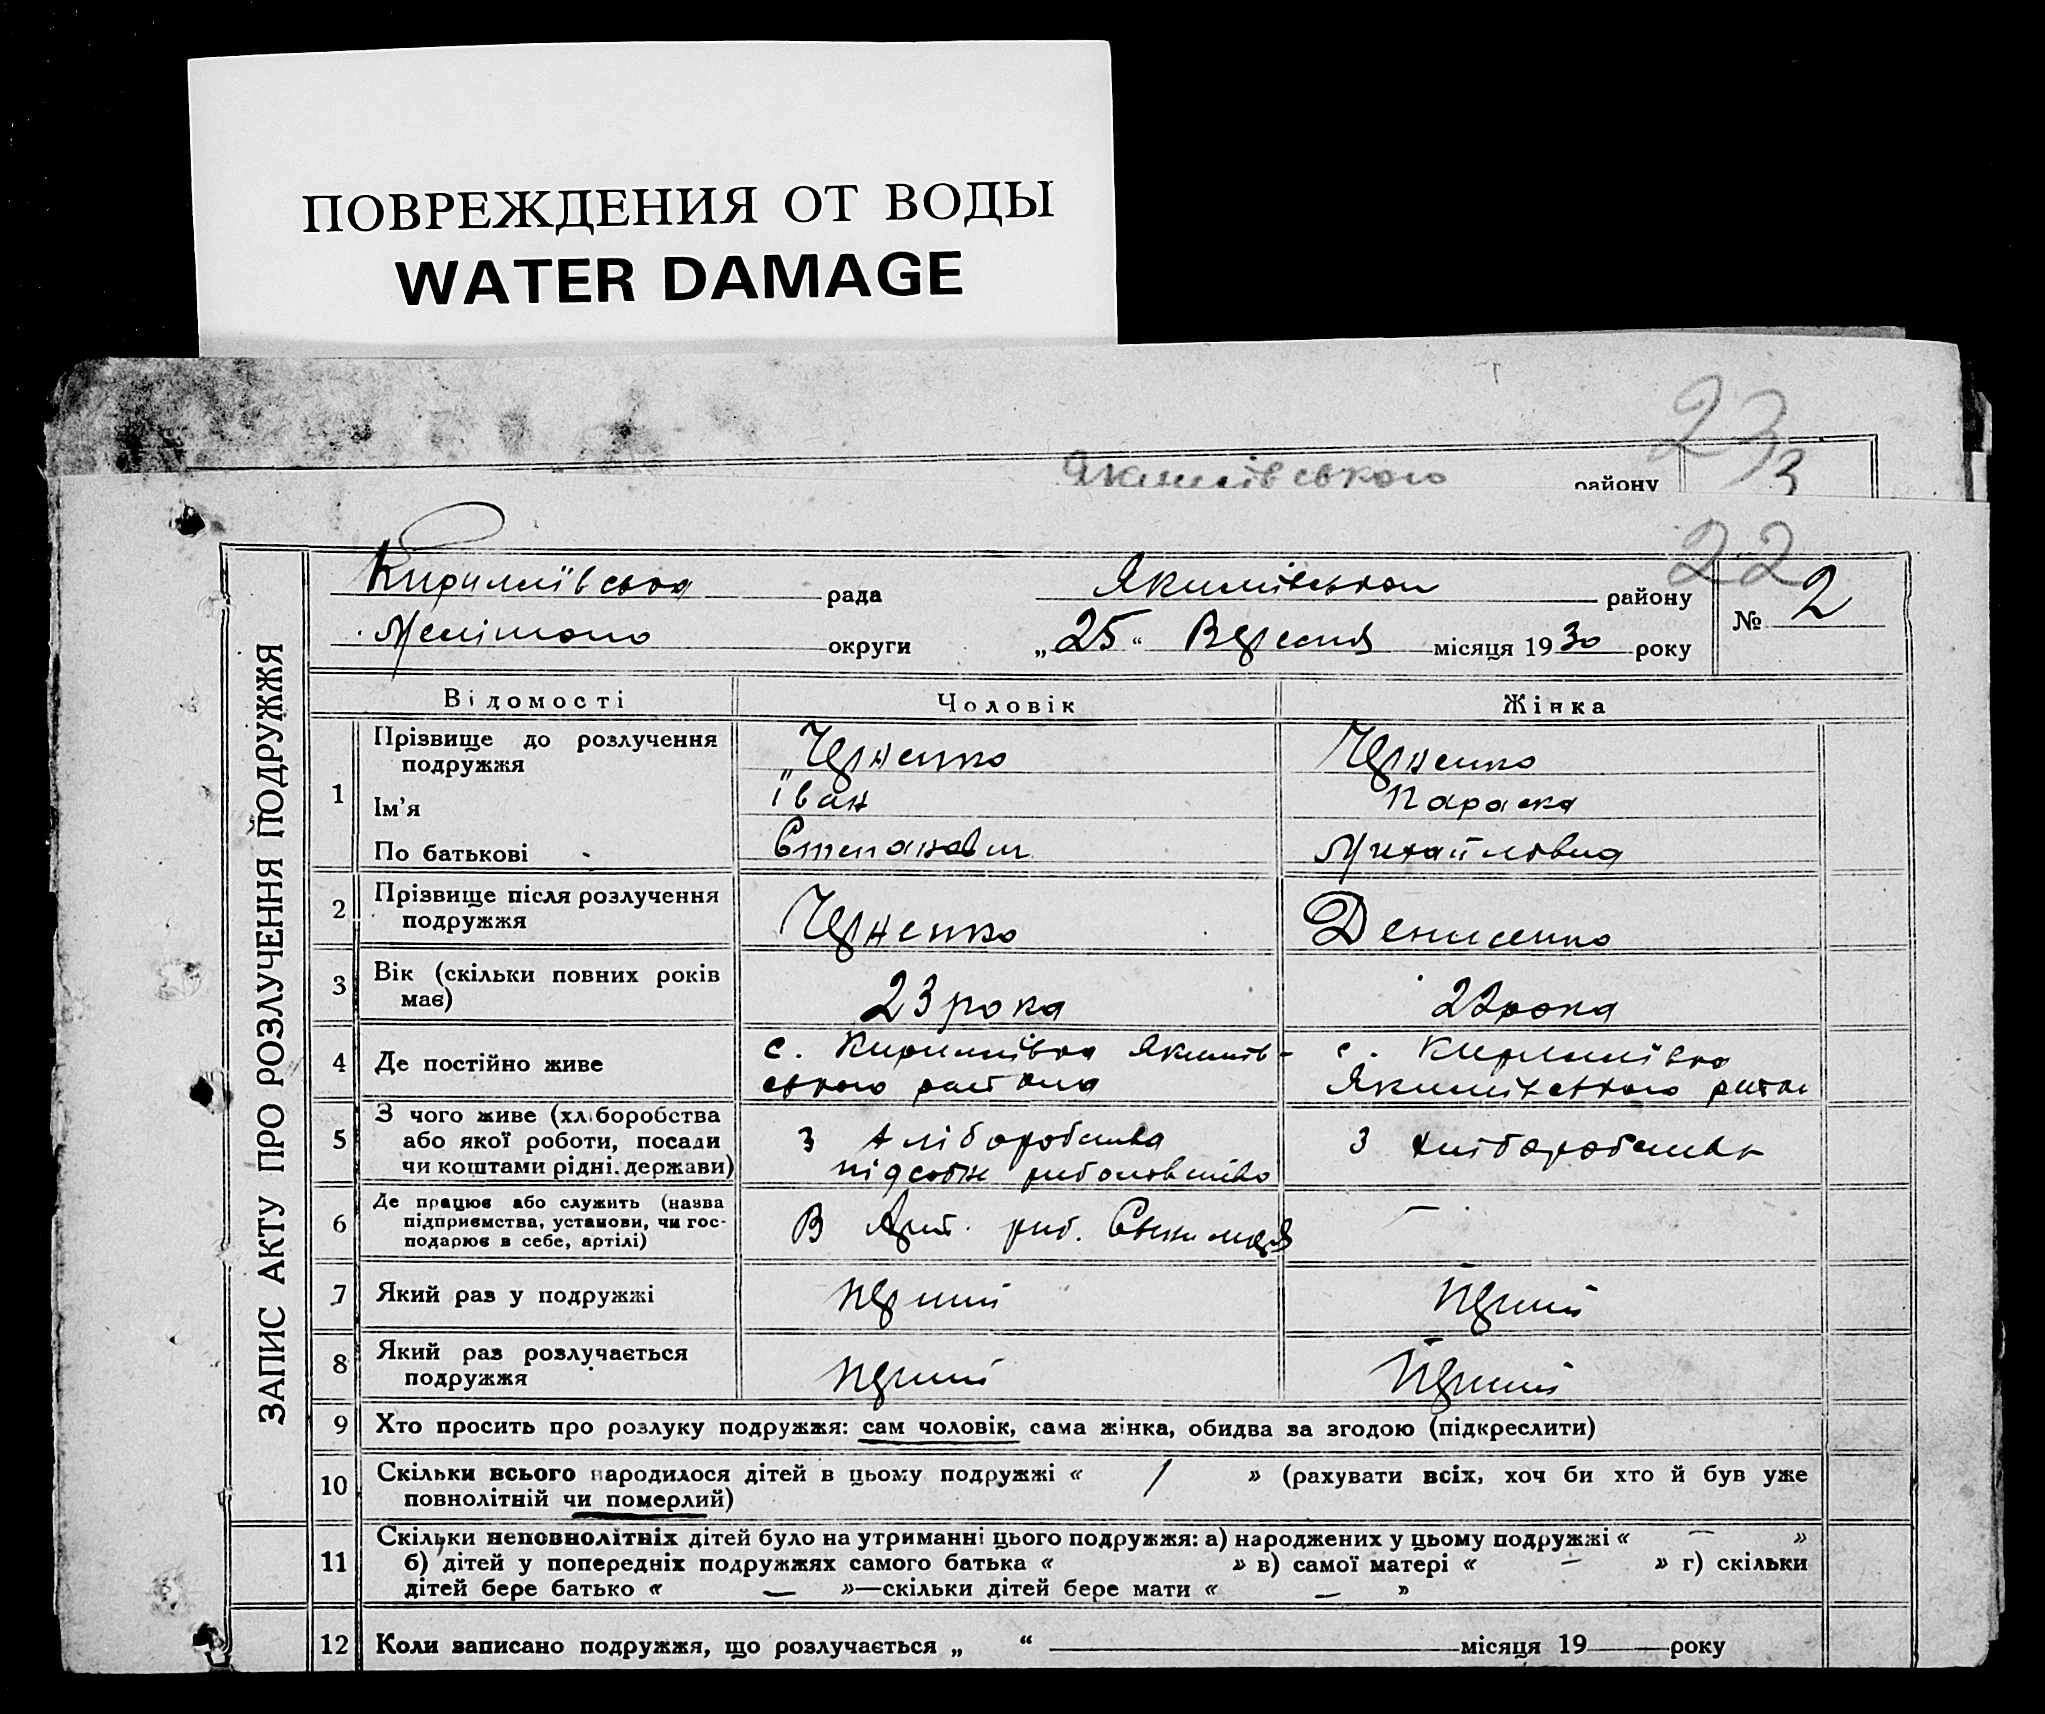 ПОВРЕЖДЕНИЯ ОТ ВОДЫ
WATER DAMAGE
23
Якимівського району 3
22
Кирилівська рада Якимівського району № 2
Мелітопо округи „25“ Вересня місяця 1930 року
ЗАПИС АКТУ ПРО РОЗЛУЧЕННЯ ПОДРУЖЖЯ
Відомості Чоловік Жінка
1 Прізвище до розлучення подружжя Черненко Черненко
Ім'я Іван Параска
По батькові Степанович Михайловна
2 Прізвище після розлучення подружжя Черненко Денисенко
3 Вік (скільки повних років має) 23 рока 22 рока
4 Де постійно живе с. Кирилівка Якимів- с. Кирилівка
ського района Якимівського
5 З чого живе (хліборобства або якої роботи, посади чи коштами рідні, держави) З хліборобства З хліборобства
підсобне риболовство
6 Де працює або служить (назва підприємства, установи, чи господарює в себе, артілі) В Арт. риб. –
7 Який раз у подружжі перший Перший
8 Який раз розлучається подружжя перший Перший
9 Хто просить про розлуку подружжя: сам чоловік, сама жінка, обидва за згодою (підкреслити)
10 Скільки всього народилося дітей в цьому подружжі « 1 » (рахувати всіх, хоч би хто й був уже
повнолітній чи померлий)
11 Скільки неповнолітніх дітей було на утриманні цього подружжя: а) народжених у цьому подружжі « – »
б) дітей у попередніх подружжях самого батька « » в) самої матері « – » г) скільки
дітей бере батько « – »—скільки дітей бере мати « – »
12 Коли записано подружжя, що розлучається „ “ місяця 19 року